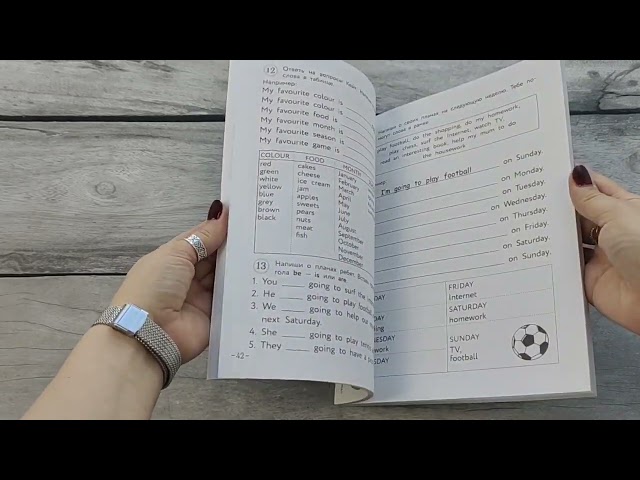 12 Ответь на вопросы
слова в таблице.
Например:
My favourite colour is
My favourite colour is
My favourite food is
My favourite month is
My favourite season is
My favourite game is
COLOUR FOOD MONTH
red cakes January
green cheese February
white ice cream March
yellow jam April
blue apples May
grey sweets June
brown pears July
black nuts August
meat September
fish October
November
December
13 Напиши о планах ребят.
гола be — is или are
1. You ____ going to surf the
2. He ____ going to play football
3. We ____ going to help our
next Saturday.
4. She ____ going to play tennis
5. They ____ going to have a
–42–
о своих планах на следующую неделю. Тебе по-
слова в рамке
play football, do the shopping, do my homework,
play chess, surf the Internet, watch TV,
read an interesting book, help my mum to do
the housework
I'm going to play football on Sunday.
on Monday.
on Tuesday.
on Wednesday.
on Thursday.
on Friday.
on Saturday.
on Sunday.
FRIDAY
Internet
SATURDAY
homework
SUNDAY
TV,
football